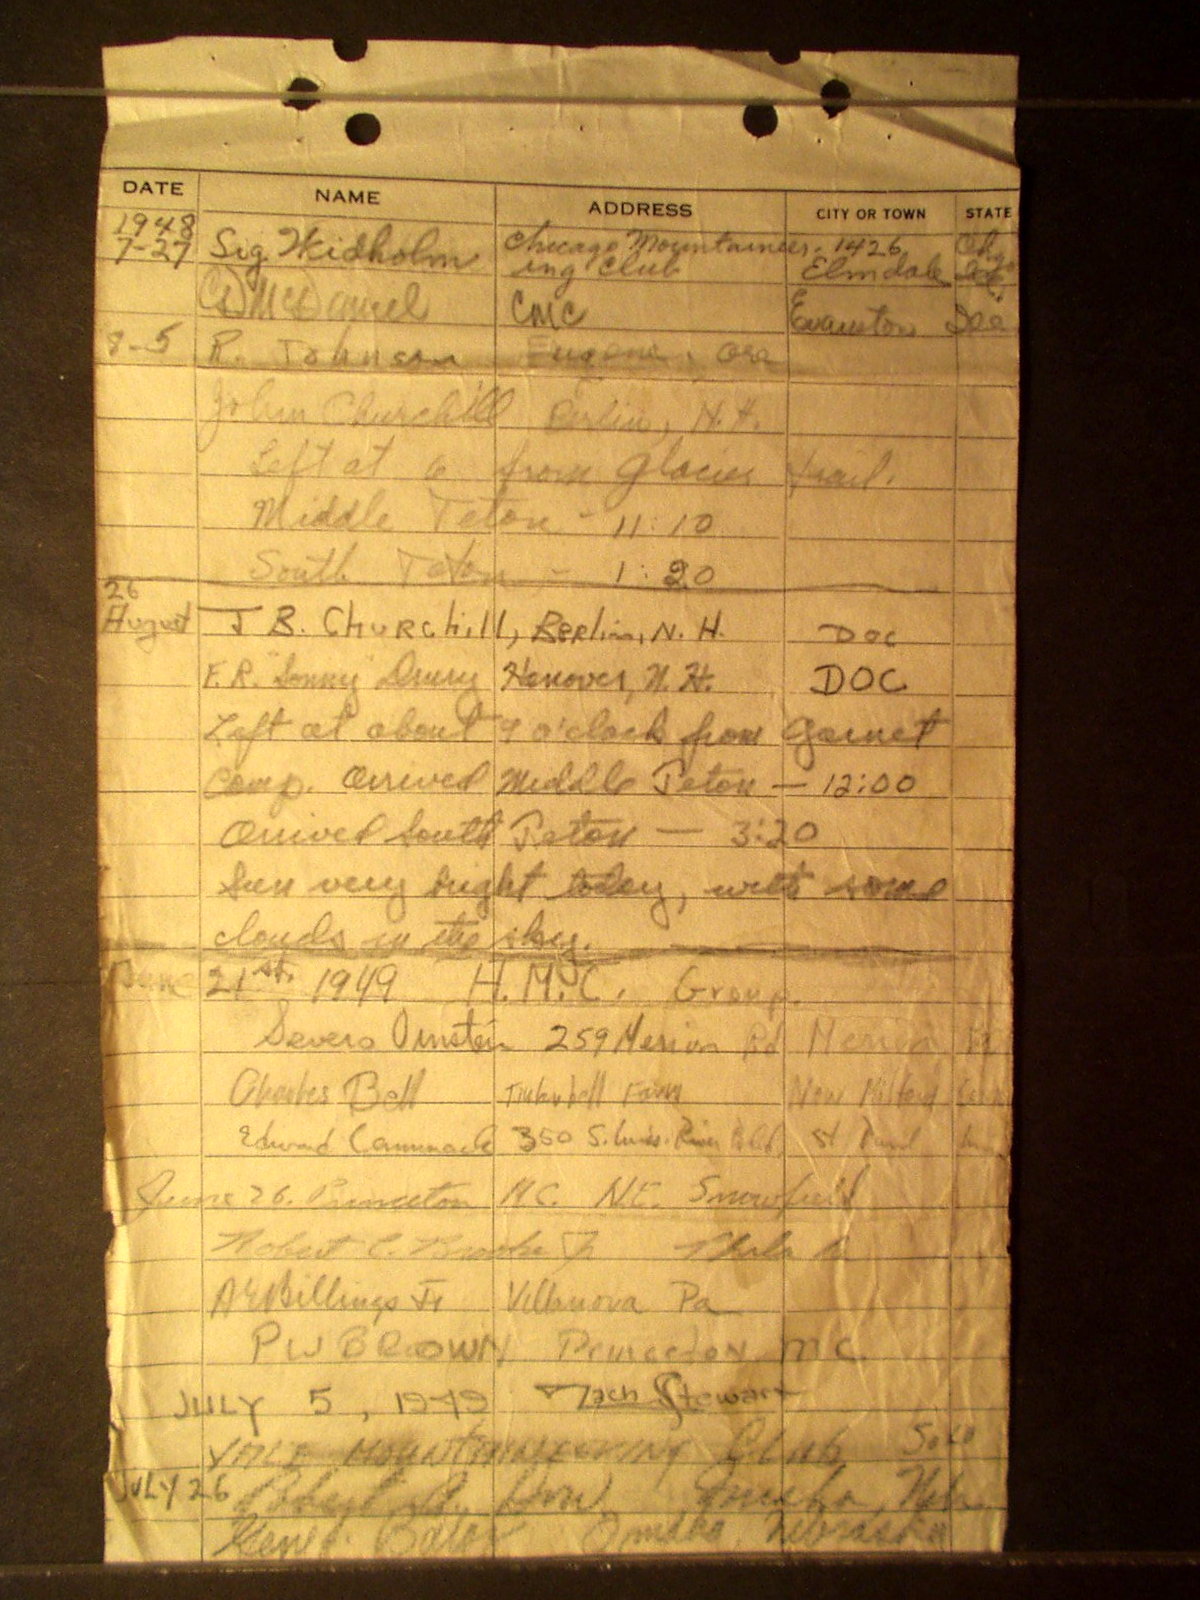 DATE NAME ADDRESS CITY OR TOWN STATE
1948
7-27 Sig Chicago Mountaineer- 1426
ing Club Elmdale
McDaniel CMC Evanston
8-5 R. Johnson Eugene, Ore
John Churchill Berlin, N.H.
Left at 6 from Glacier trail.
Middle Teton - 11:10
South Teton - 1:20
26
August J B. Churchill, Berlin, N. H. DOC
F. R. "Sonny" Drury Hanover, N. H. DOC
Left at about 9 o'clock from Garnet
Camp. Arrived Middle Teton — 12:00
Arrived South Teton — 3:20
Sun very bright today, with some
clouds in the sky.
June 21st 1949 H.M.C. Group.
Severo Ornstein 259 Merion Rd Merion Pa
Charles Bell Farm New Milford Conn
Edward Cammack 350 S. Miss. River Blvd St Paul
June 26. Princeton M.C. N.E. Snowfield
Robert C. Jr Phila Pa
Billings Jr Villanova Pa
P W BROWN Princeton M C.
JULY 5, 1949 Zach Stewart
YALE MOUNTAINEERING Club Solo
JULY 26 Omaha, Nebr
Gene Omaha, Nebraska